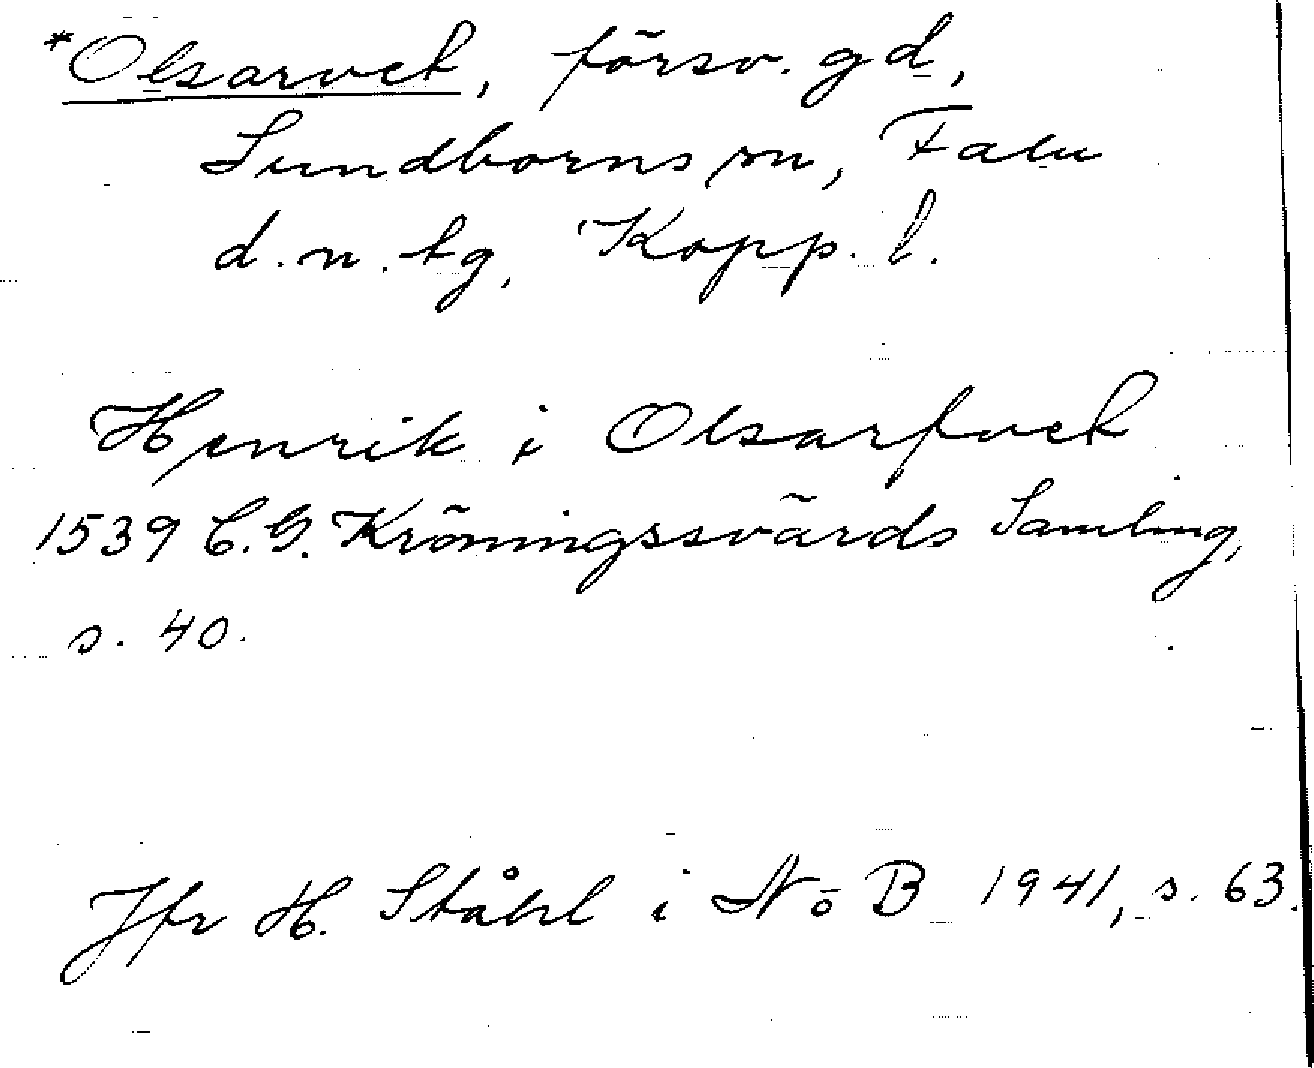 *Olsarvet, försv. gd,
Sundborns sn, Falu
d. n. tg, Kopp. l.
Henrik i Olsarfvet
1539 C.G. Kröningssvärds Samling,
s. 40.
Jfr H. Ståhl i NoB 1941, s. 63.